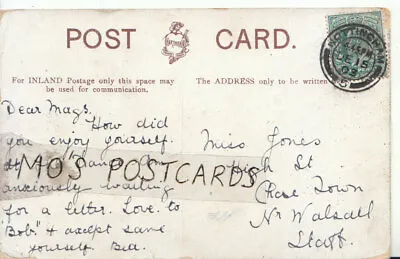 POST CARD.
For INLAND Postage only this space may
be used for communication.
The ADDRESS only to be written
Dear Mags.
How did
you enjoy yourself.
at
anxiously waiting
for a letter. Love to
Bob." & accept same
yourself Bea.
Miss Jones
High St
Chase Town
Nr Walsall
Staff.
MOS POSTCARDS